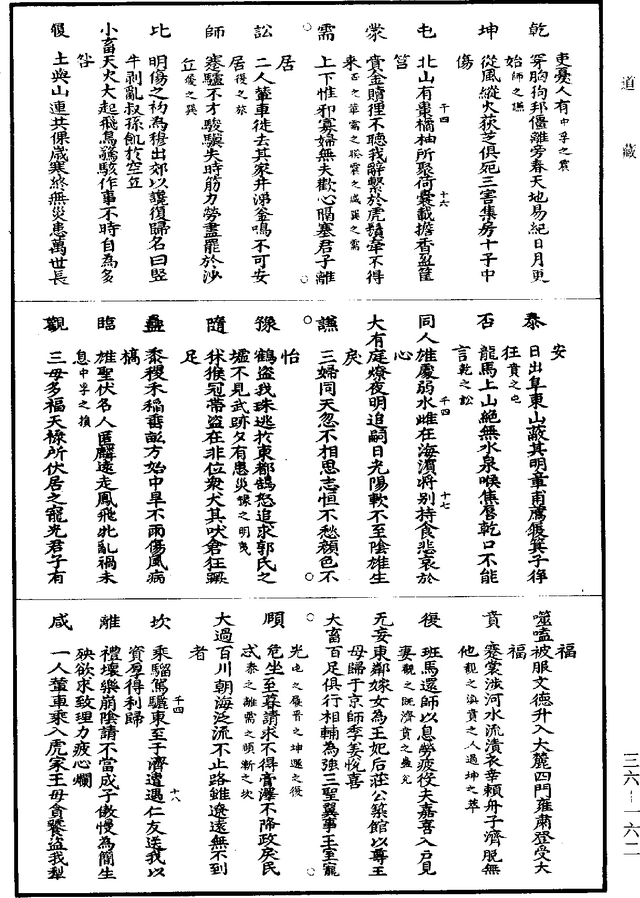 道 藏
吏憂人有 中孚之震
乾 穿胸狗邦僵離旁舂天地易紀日月更
始 師之謙
坤 從風縱火荻芝俱死三害集房十子中
傷
十四 十六
屯 北山有棗橘柚所聚荷囊載擔香盈筐
筥
蒙 賫金贖狸不聽我辭繫於虎鬚牽不得
來 否之革需之睽震之咸巽之需
需 上下惟邪寡婦無夫歡心隔塞君子離
居
訟 二人輦車徙去其家井沸釜鳴不可安
居 復之旅
師 蹇驢不才駿驥失時筋力勞盡罷於沙
丘 之巽
比 明傷之初為穆出郊以讒復歸名曰豎
牛剥亂叔孫飢於空丘
小畜 天火大起飛鳥驚駭作事不時自為多
咎
履 土與山連共保歲寒終無災患萬世長
安
泰 日出阜東山蔽其明章甫薦屨箕子徉
狂 賁之屯
否 龍馬上山絕無水泉喉焦唇乾口不能
言 乾之訟
十四 十七
同人 雄處弱水雌在海濱將別持食悲哀於
心
大有 庭燎夜明追嗣日光陽軟不至陰雄生
戾
謙 三婦同夫忽不相思志恒不愁顏色不
怡
豫 鶴盜我珠逃於東都鵠怒追求郭氏之
墟不見武跡反有患災 豫之明夷
隨 秫猴冠帶盜在非位衆犬其吠倉狂蹶
足
蠱 黍稷禾稻垂畝方始中旱不雨傷風病
槁
臨 雄聖伏名人匿麟遠走鳳飛北亂禍未
息 中孚之損
觀 三母多福天祿所伏居之寵光君子有
福
噬嗑 被服文德升入大麓四門雍肅登受大
福
賁 褰裳涉河水流漬衣幸賴舟子濟脫無
他 觀之渙賁之人過坤之萃
復 班馬還師以息勞疲役夫嘉喜入戶見
妻 觀之既濟賁之
无妄 東鄰嫁女為王妃后莊公築館以尊王
母歸于京師季姜悅喜
大畜 百足俱行相輔為強三聖翼事王室寵
光 屯之履晉之坤遯之復
頤 危坐至暮請求不得膏澤不降政戾民
忒 泰之離需之頤漸之坎
大過 百川朝海泛流不止路雖遼遠無不到
者
十四 十八
坎 乘騮駕驪東至于濟遭遇仁友送我以
資厚得利歸
離 禮壞樂崩陰請不當成子傲慢為簡生
殃欲求致理力疲心爛
咸 一人輦車乘入虎家王母貪饕盜我犁
三六—一六二